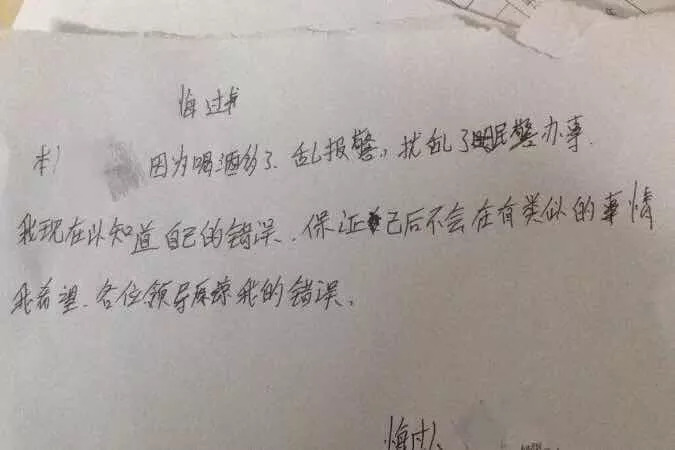 悔过书
本人 因为喝酒多了、乱报警,扰乱了民警办事.
我现在以知道自己的错误、保证己后不会在有类似的事情
我希望、各位领导原谅我的错误、
悔过人